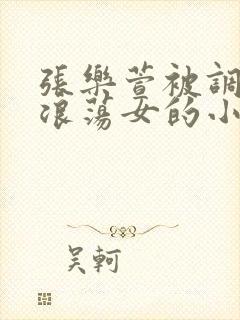 張樂萱被調
浪蕩女的小
吴軻